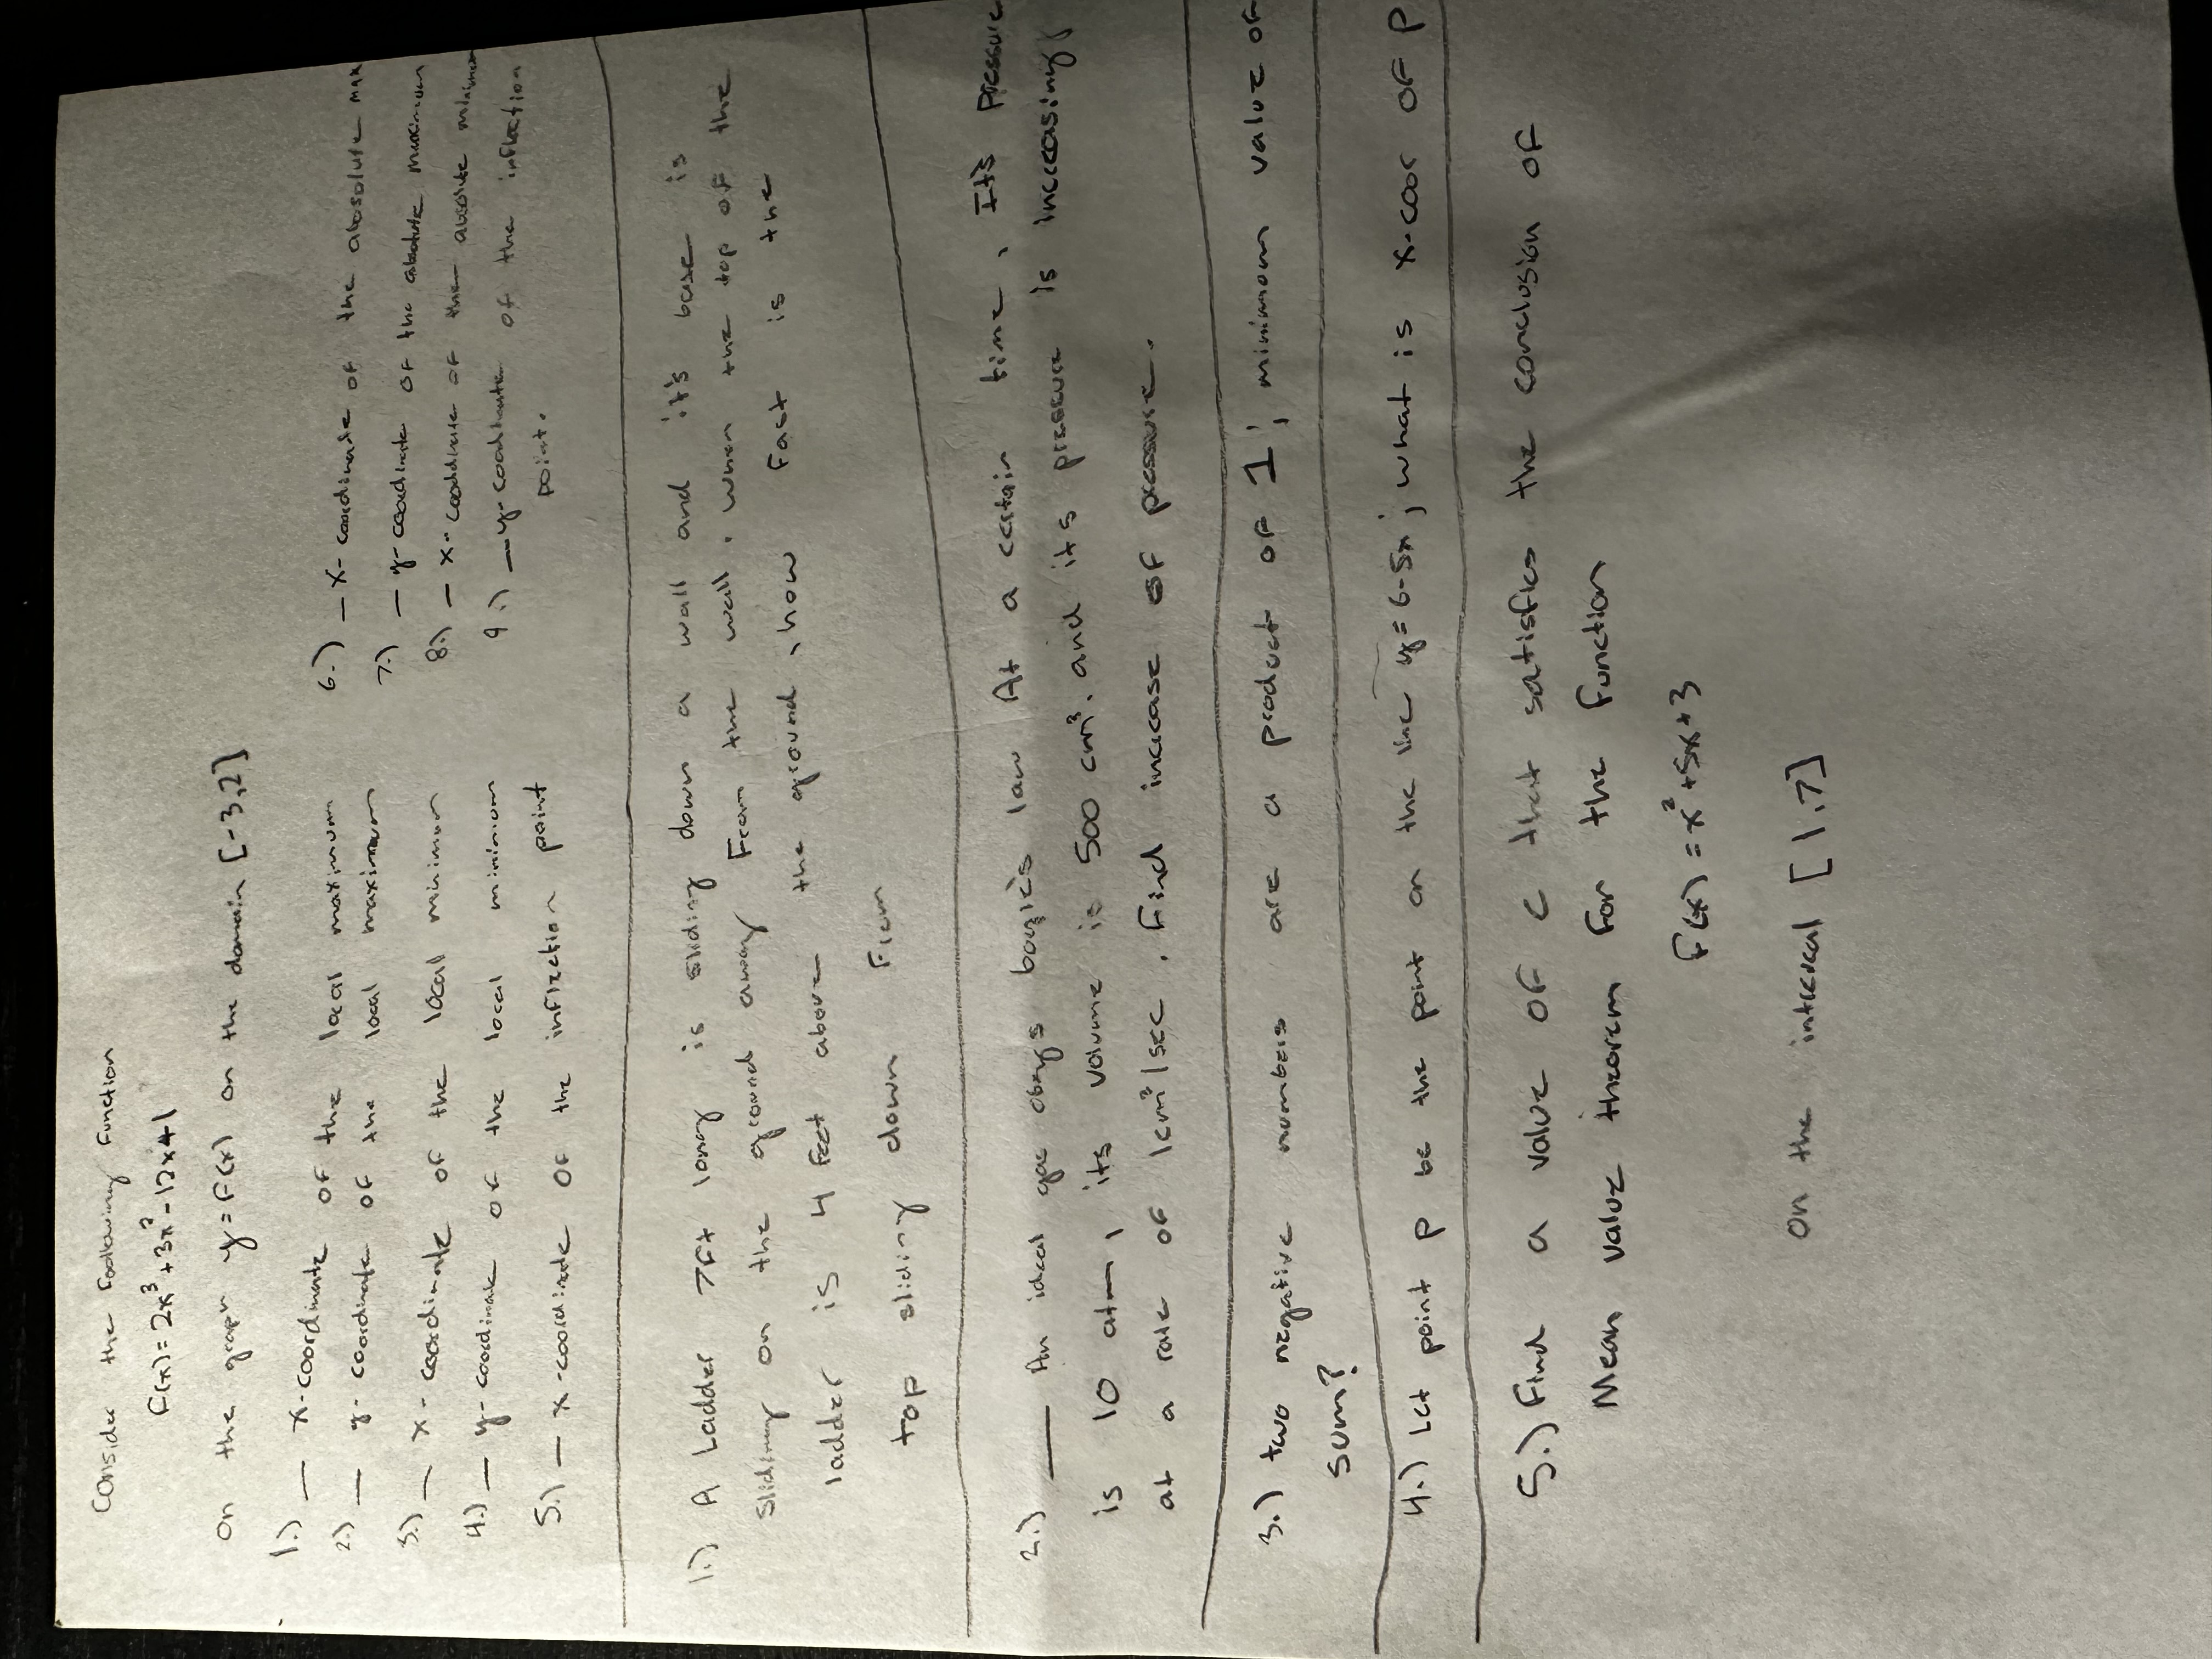 Consider the following function
F(x) = 2x³ + 3x² - 12x + 1
on the graph y = F(x) on the domain [-3,2]
1.) — x-coordinate of the local maximum
2.) — y-coordinate of the local maximum
3.) — x-coordinate of the local minimum
4.) — y-coordinate of the local minimum
5.) — x-coordinate of the inflection point
6.) — x-coordinate of the absolute max
7.) — y-coordinate of the absolute maximum
8.) — x-coordinate of the absolute minimum
9.) — y-coordinate of the inflection
point.
1.) A Ladder 7ft long is sliding down a wall and it's base is
sliding on the ground away From the wall. when the top of the
ladder is 4 feet above the ground, how Fast is the
top sliding down From
2.) — An ideal gas obeys law At a certain time, It's Pressure
is 10 atm, its volume is 500 cm³. and its pressure is increasing
at a rate of 1cm³/sec. Find increase of pressure.
3.) two negative numbers are a product of 1; minimum value of
sum?
4.) Let point P be the point on the line y = 6-5x; what is x-coor of P
5.) Find a value of c that satisfies the conclusion of
Mean value theorem For the Function
F(x) = x² + 5x + 3
on the interval [1,7]